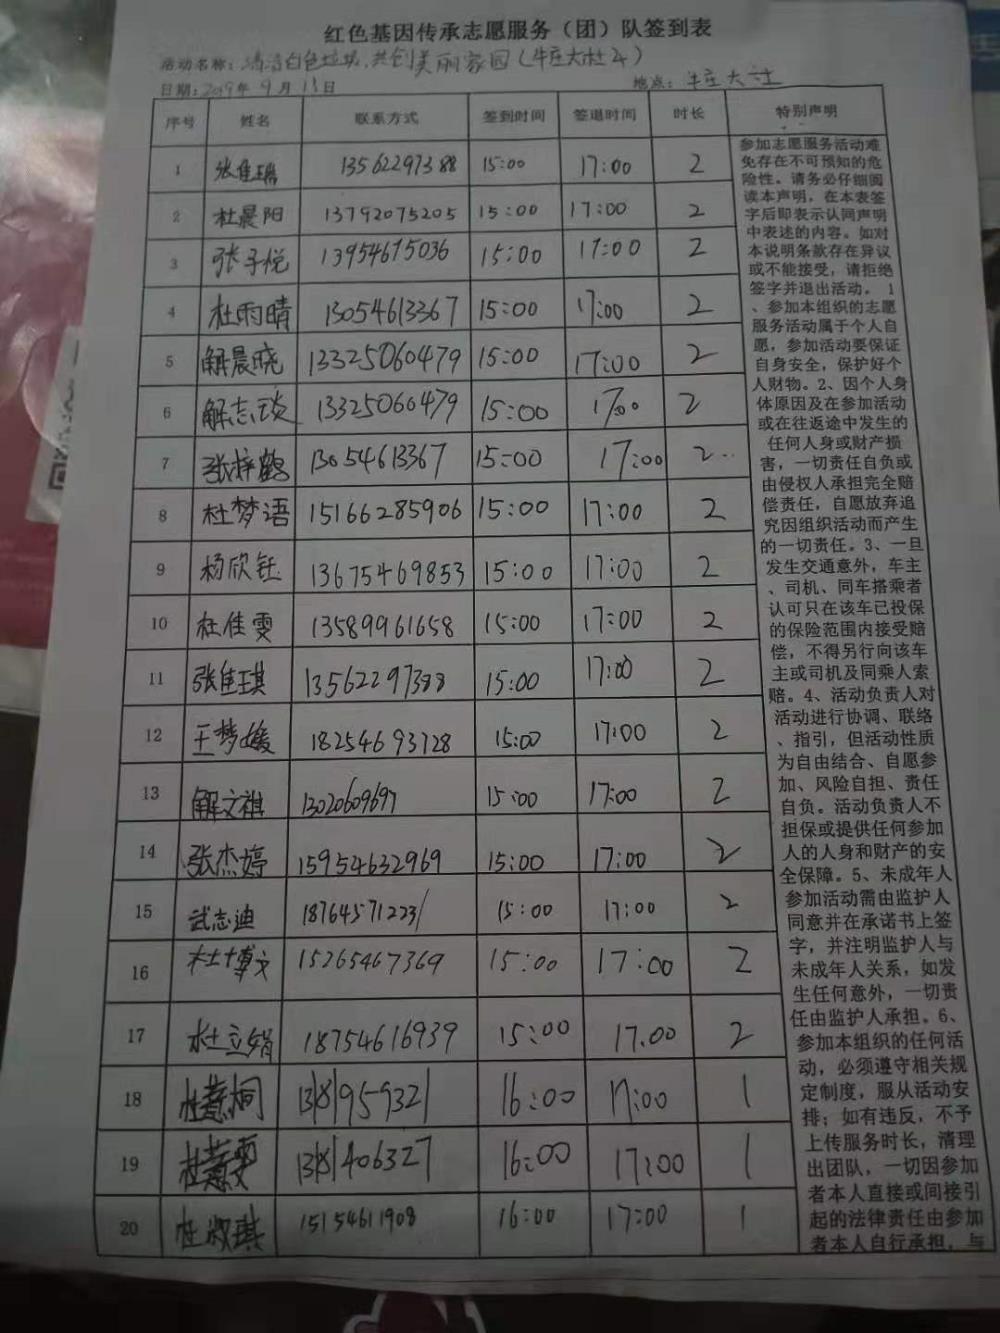 红色基因传承志愿服务（团）队签到表
活动名称：清洁白色垃圾,共创美丽家园（牛庄大杜4）
日期:2019年9月13日 地点：牛庄大杜
序号 姓名 联系方式 签到时间 签退时间 时长 特别声明
1 张佳瑶 13562297388 15:00 17:00 2
2 杜晨阳 13792075205 15:00 17:00 2
3 张子悦 13954675036 15:00 17:00 2
4 杜雨晴 13054613367 15:00 17:00 2
5 解晨晓 13325060479 15:00 17:00 2
6 解志琰 13325060479 15:00 17:00 2
7 张梓鹤 13054613367 15:00 17:00 2
8 杜梦语 15166285906 15:00 17:00 2
9 杨欣钰 13675469853 15:00 17:00 2
10 杜佳雯 13589961658 15:00 17:00 2
11 张佳琪 13562297388 15:00 17:00 2
12 王梦媛 18254693728 15:00 17:00 2
13 解文祺 13020609697 15:00 17:00 2
14 张杰婷 15954632969 15:00 17:00 2
15 武志迪 18764571223/ 15:00 17:00 2
16 杜博文 15265467369 15:00 17:00 2
17 杜立娟 18754616939 15:00 17.00 2
18 杜慧桐 13181959321 16:00 17:00 1
19 杜慧雯 13181406327 16:00 17:00 1
20 杜淑琪 15154611908 16:00 17:00 1
参加志愿服务活动难
免存在不可预知的危
险性。请务必仔细阅
读本声明，在本表签
字后即表示认同声明
中表述的内容。如对
本说明条款存在异议
或不能接受，请拒绝
签字并退出活动。1
、参加本组织的志愿
服务活动属于个人自
愿，参加活动要保证
自身安全，保护好个
人财物。2、因个人身
体原因及在参加活动
或在往返途中发生的
任何人身或财产损
害，一切责任自负或
由侵权人承担完全赔
偿责任，自愿放弃追
究因组织活动而产生
的一切责任。3、一旦
发生交通意外，车主
、司机、同车搭乘者
认可只在该车已投保
的保险范围内接受赔
偿，不得另行向该车
主或司机及同乘人索
赔。4、活动负责人对
活动进行协调、联络
、指引，但活动性质
为自由结合、自愿参
加、风险自担、责任
自负。活动负责人不
担保或提供任何参加
人的人身和财产的安
全保障。5、未成年人
参加活动需由监护人
同意并在承诺书上签
字，并注明监护人与
未成年人关系，如发
生任何意外，一切责
任由监护人承担。6、
参加本组织的任何活
动，必须遵守相关规
定制度，服从活动安
排；如有违反，不予
上传服务时长，清理
出团队，一切因参加
者本人直接或间接引
起的法律责任由参加
者本人自行承担，与